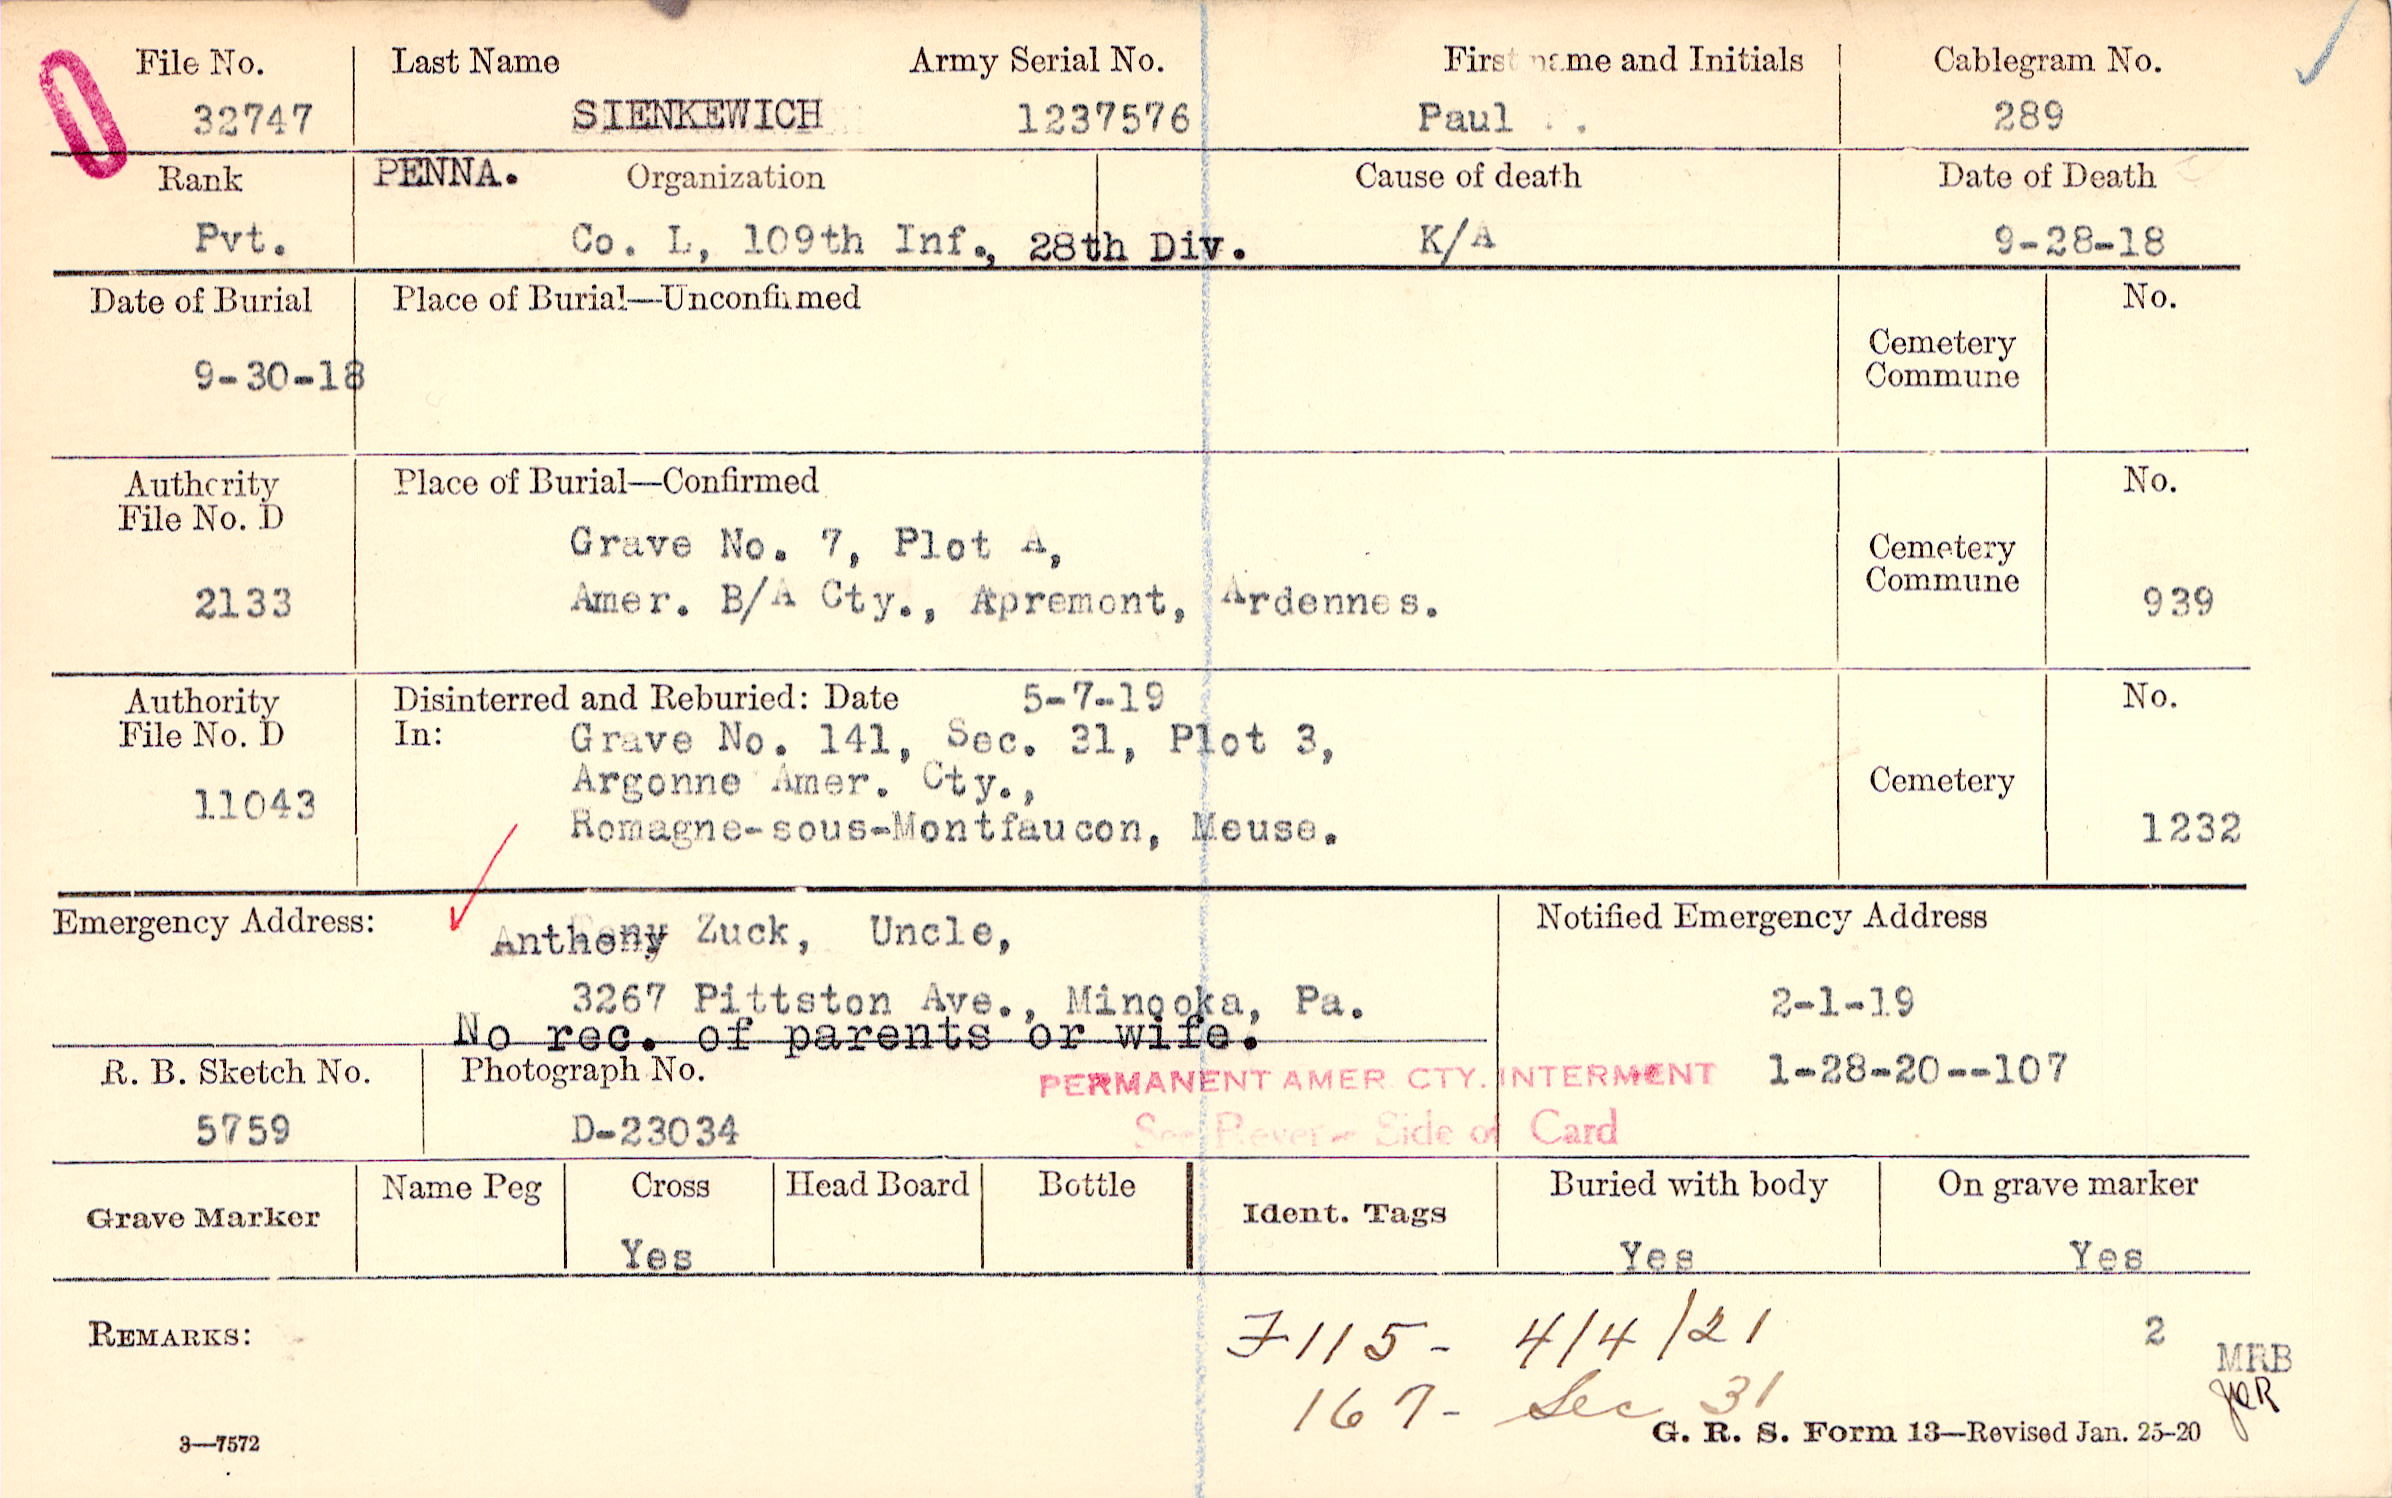 File No. Last Name Army Serial No. First name and Initials Cablegram No.
32747 SIENKEWICH 1237576 Paul 289
Rank PENNA. Organization Cause of death Date of Death
Pvt. Co. L, 109th Inf., 28th Div. K/A 9-28-18
Date of Burial Place of Burial—Unconfirmed No.
Cemetery
Commune
9-30-18
Authority Place of Burial—Confirmed No.
File No. D
Grave No. 7, Plot A, Cemetery
Commune
2133 Amer. B/A Cty., Apremont, Ardennes. 939
Authority Disinterred and Reburied: Date 5-7-19 No.
File No. D In: Grave No. 141, Sec. 31, Plot 3,
Argonne Amer. Cty., Cemetery
11043 Romagne-sous-Montfaucon, Meuse. 1232
Emergency Address: Anthony Zuck, Uncle, Notified Emergency Address
3267 Pittston Ave., Minooka, Pa. 2-1-19
No rec. of parents or wife.
R. B. Sketch No. Photograph No. PERMANENT AMER CTY. INTERMENT 1-28-20--107
5759 D-23034 See Reverse Side of Card
Grave Marker Name Peg Cross Head Board Bottle Ident. Tags Buried with body On grave marker
Yes Yes Yes
REMARKS: F115- 4/4/21 2
MRB
167- Sec 31 JCR
3—7572 G. R. S. Form 13—Revised Jan. 25-20